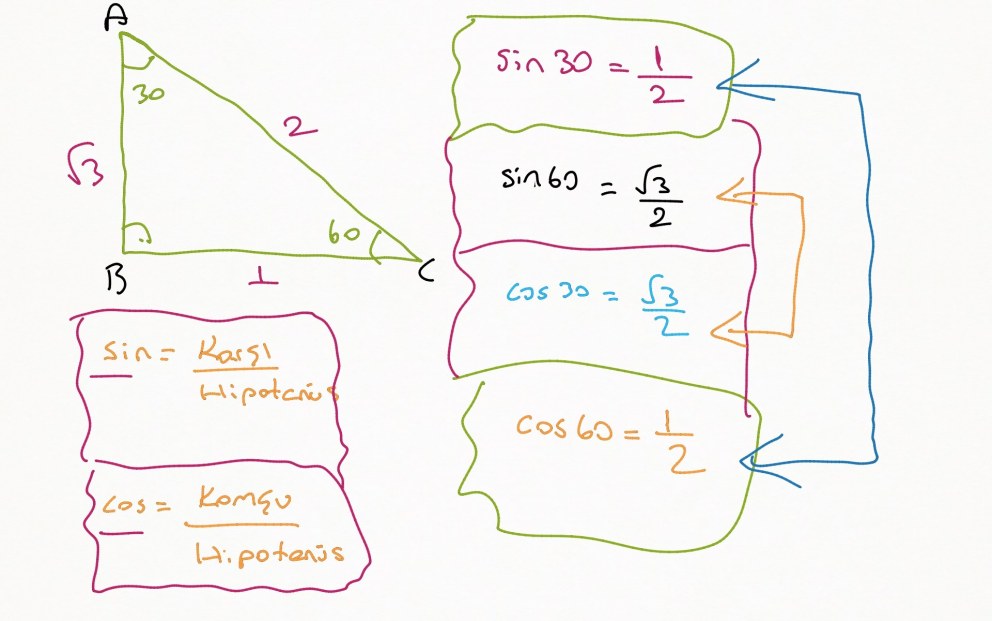 A
30
√3
2
60
B
1
C
sin = Karşı / Hipotenüs
cos = Komşu / Hipotenüs
sin 30 = 1/2
sin 60 = √3/2
cos 30 = √3/2
cos 60 = 1/2